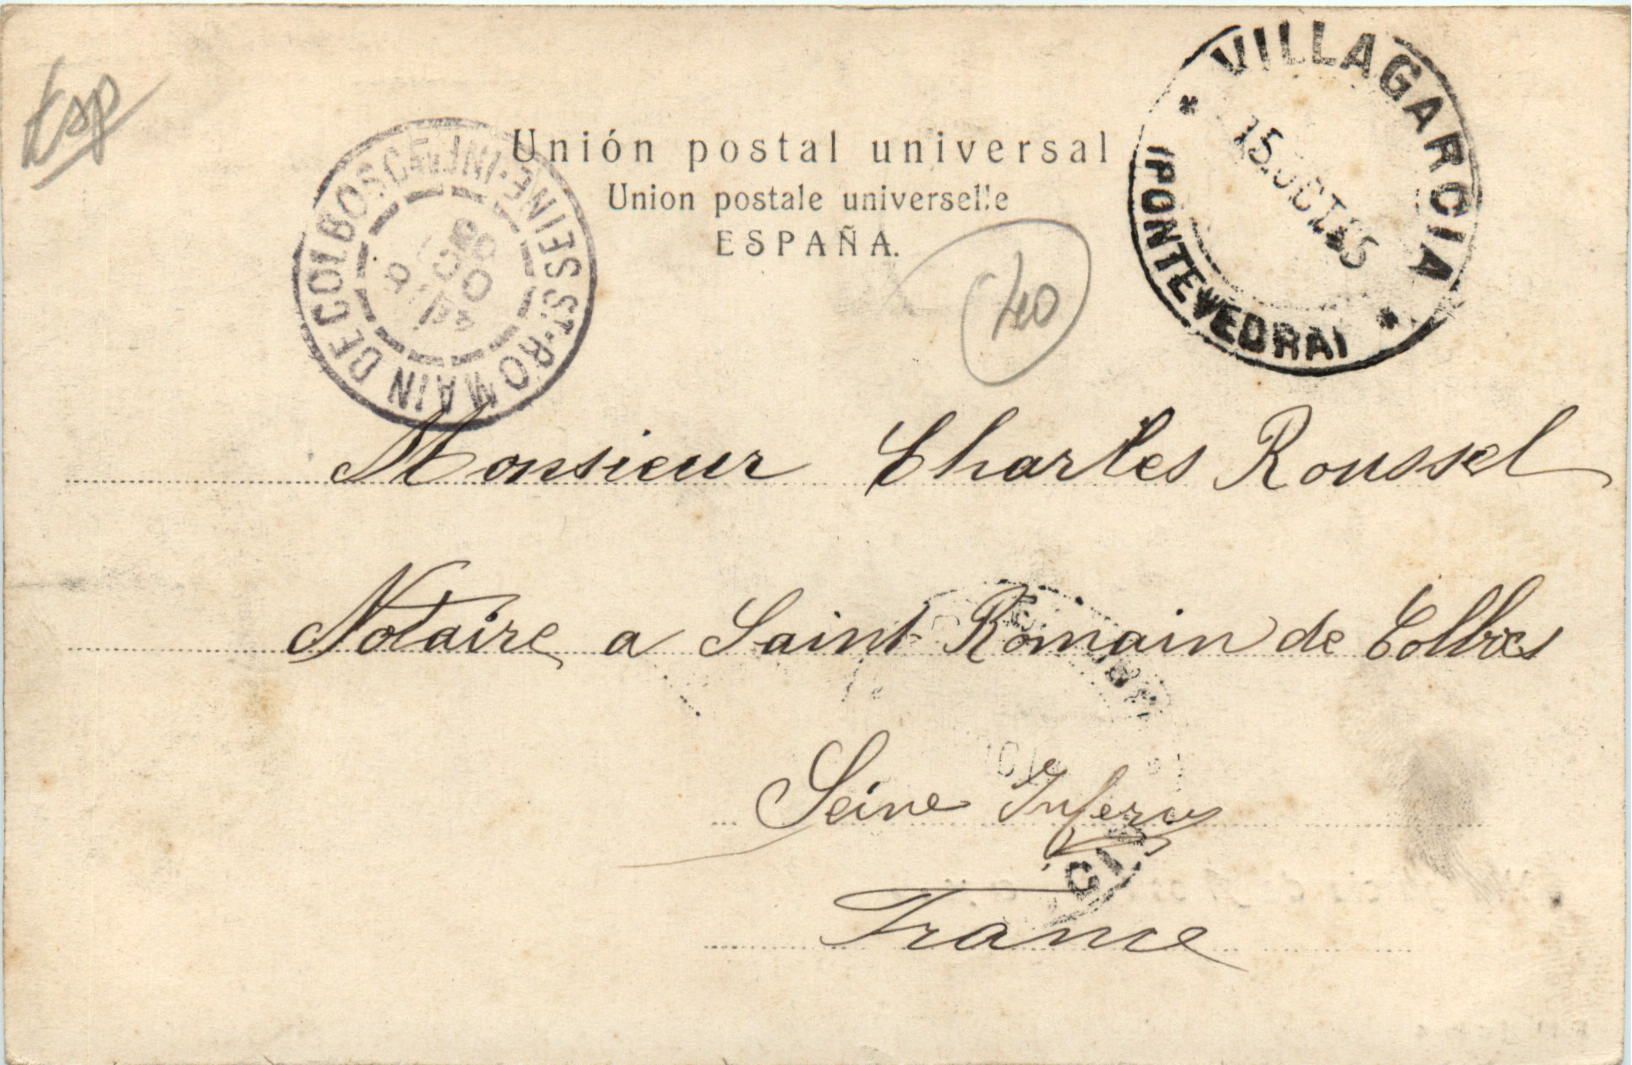 Esp
Unión postal universal
Union postale universelle
ESPAÑA.
VILLAGARCIA
15.OCT.05
(PONTEVEDRA)
ST-ROMAIN DE COLBOSC
SEINE-INFRE
40
Monsieur Charles Roussel
Notaire a Saint Romain de Colbosc
Seine Infere
France